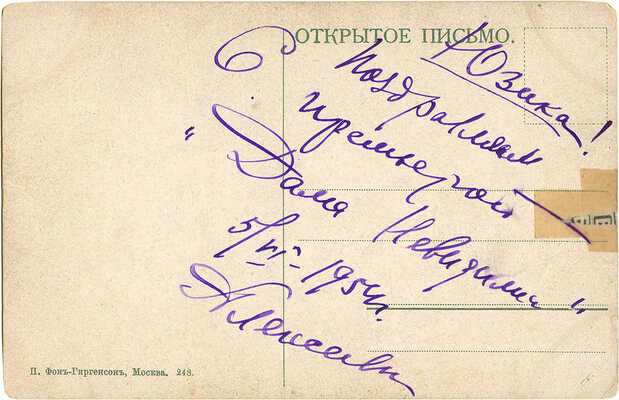 ОТКРЫТОЕ ПИСЬМО.
Юзика!
Поздравляем
С премьерой
"Дама Невидима"
5/VI-1954г.
Алексеевы
П. Фонъ-Гиргенсонъ, Москва. 248.